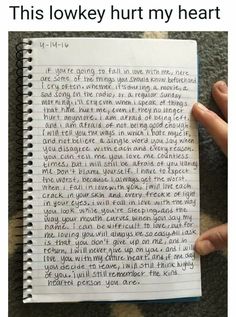 This lowkey hurt my heart
4-14-16
if you're going to fall in love with me, here
are some of the things you should know beforehand
I cry often. whether it's during a movie, a
sad song on the radio, or a regular sunday
morning. I'll cry even when I speak of things
that have hurt me, even if they no longer
hurt anymore. I am afraid of being left,
and I am afraid of not being good enough.
I will tell you the ways in which I hate myself,
and not believe a single word you say when
you disagree with each and every reason.
you can tell me you love me countless
times, but I will still be afraid of you leaving
me. Don't blame yourself. I have to expect
the worst, because I always get the worst.
when I fall in love with you, I will love each
crack in your skin and every freckle of light
in your eyes. I will fall in love with the way
you look while you're sleeping and the
way your mouth curves when you say my
name. I can be difficult to love, but for
me loving you will always be so easy. All I ask
is that you don't give up on me, and in
return, I will never give up on you. and I will
love you with my entire heart. and if one day
you decide to leave, I will still think highly
of you. I will still remember the kind
hearted person you are.